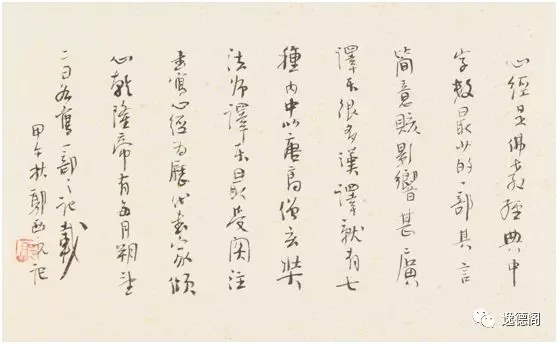 心經是佛教經典中
字數最少的一部其言
簡意賅影響甚廣
譯本很多漢譯就有七
種內中以唐高僧玄奘
法师譯本最受関注
書寫心經为歷代書家傾
心乾隆帝有每月朔望
二日各寫一部之记載
甲午秋 记
逸德阁